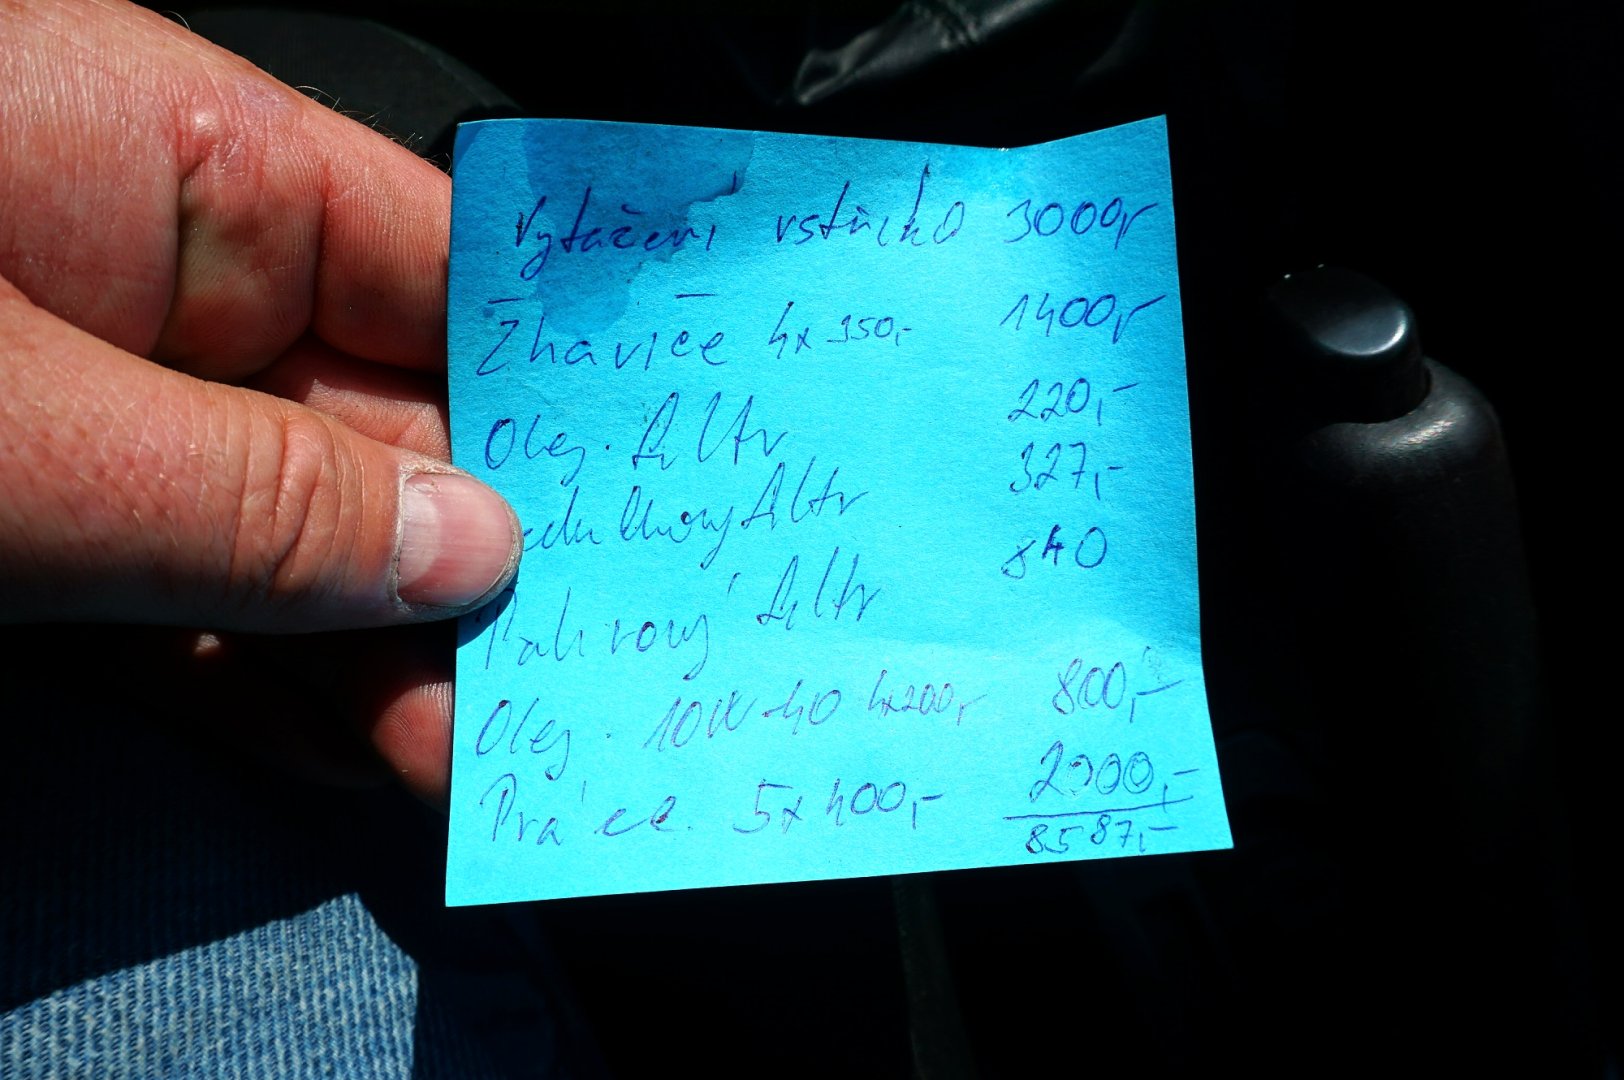 Vytáčení vstřiků 3000,-
Žhaviče 4x350,- 1400,-
Olej. filtr 220,-
filtr 327,-
Palivový filtr 840
Olej. 10W-40 4x200,- 800,-
Práce. 5x400,- 2000,-
8587,-